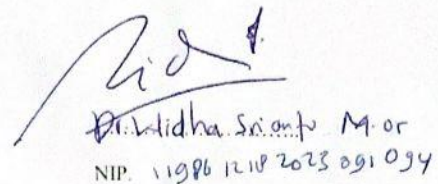 Dr. Widha Srianto M.or
NIP. 11986 1218 2023 091 094